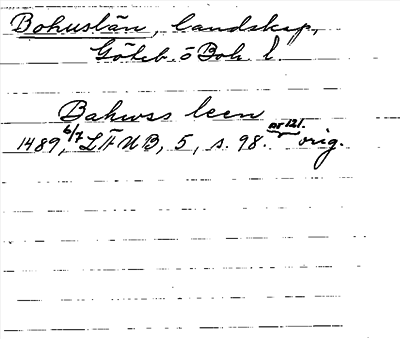 Bohuslän, landskap,
Göteb. o Boh. l.
Bahwss leen
1489, 6/7 LÄUB, 5, s. 98. nr 121. orig.